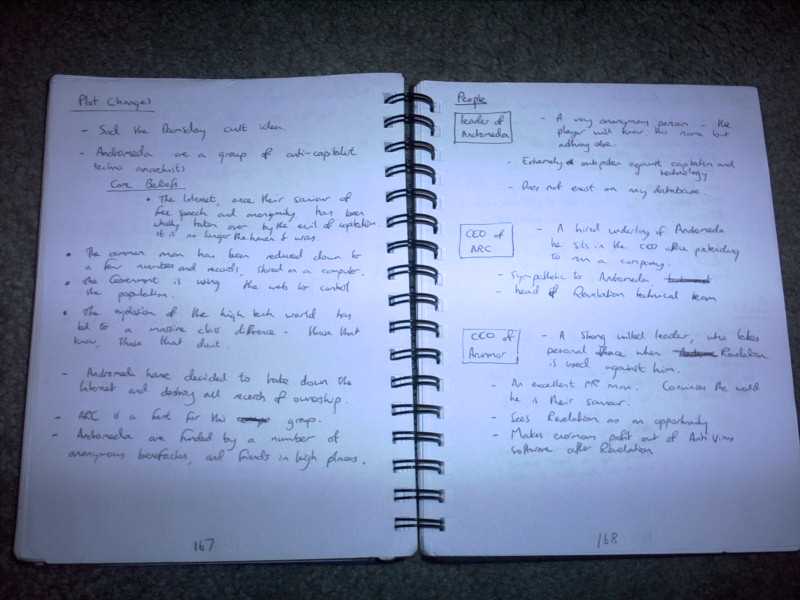 Plot Changes
- Sod the Doomsday cult idea.
- Andromeda are a group of anti-capitalist
techno anarchists.
Core Beliefs
• The Internet, once their saviour of
free speech and anonymity has been
wholly taken over by the evil of capitalism.
It is no longer the haven it was.
• The common man has been reduced down to
a few numbers and records, stored on a computer.
• The Government is using the web to control
the population.
• The explosion of the high tech world has
led to a massive class difference - those that
know, those that dont.
- Andromeda have decided to take down the
Internet and destroy all records of ownership.
- ARC is a front for this group.
- Andromeda are funded by a number of
anonymous benefactors, and friends in high places.
167
People
leader of
Andromeda
- A very anonymous person - the
player will know this name but
nothing else.
- Extremely outspoken against capitalism and
technology
- Does not exist on any database.
CEO of
ARC
- A hired underling of Andromeda
he sits in the CEO office pretending
to run a company.
- Sympathetic to Andromeda
- head of Revelation technical team
CEO of
Arunmor
- A strong willed leader, who takes
personal offence when Revelation
is used against him.
- An excellent PR man. Convinces the world
he is their saviour.
- Sees Revelation as an opportunity
- Makes enormous profit out of Anti Virus
software after Revelation
168